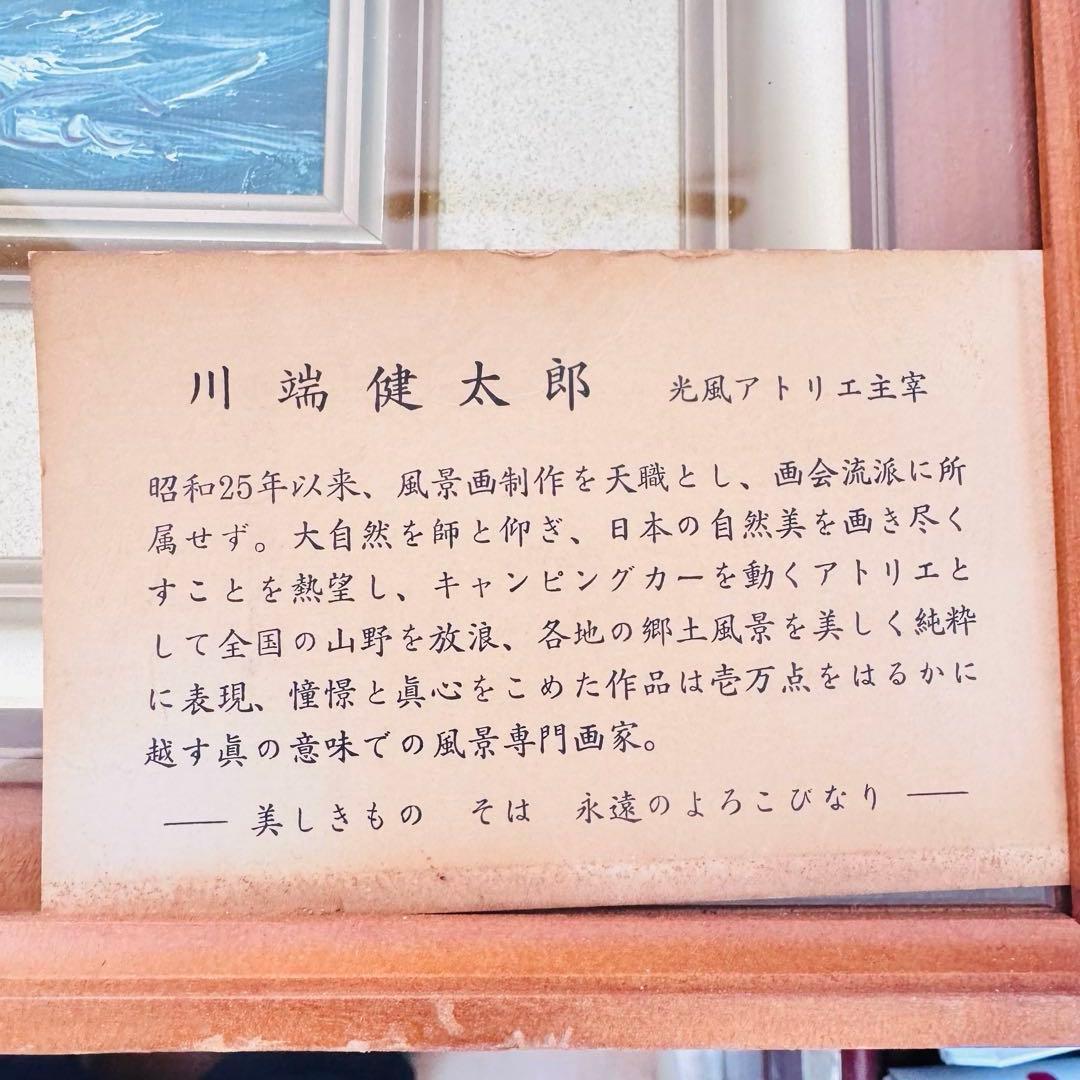 川端健太郎　光風アトリエ主宰
昭和25年以来、風景画制作を天職とし、画会流派に所
属せず。大自然を師と仰ぎ、日本の自然美を画き尽く
すことを熱望し、キャンピングカーを動くアトリエと
して全国の山野を放浪、各地の郷土風景を美しく純粋
に表現、憧憬と眞心をこめた作品は壱万点をはるかに
越す眞の意味での風景専門画家。
── 美しきもの　そは　永遠のよろこびなり ──